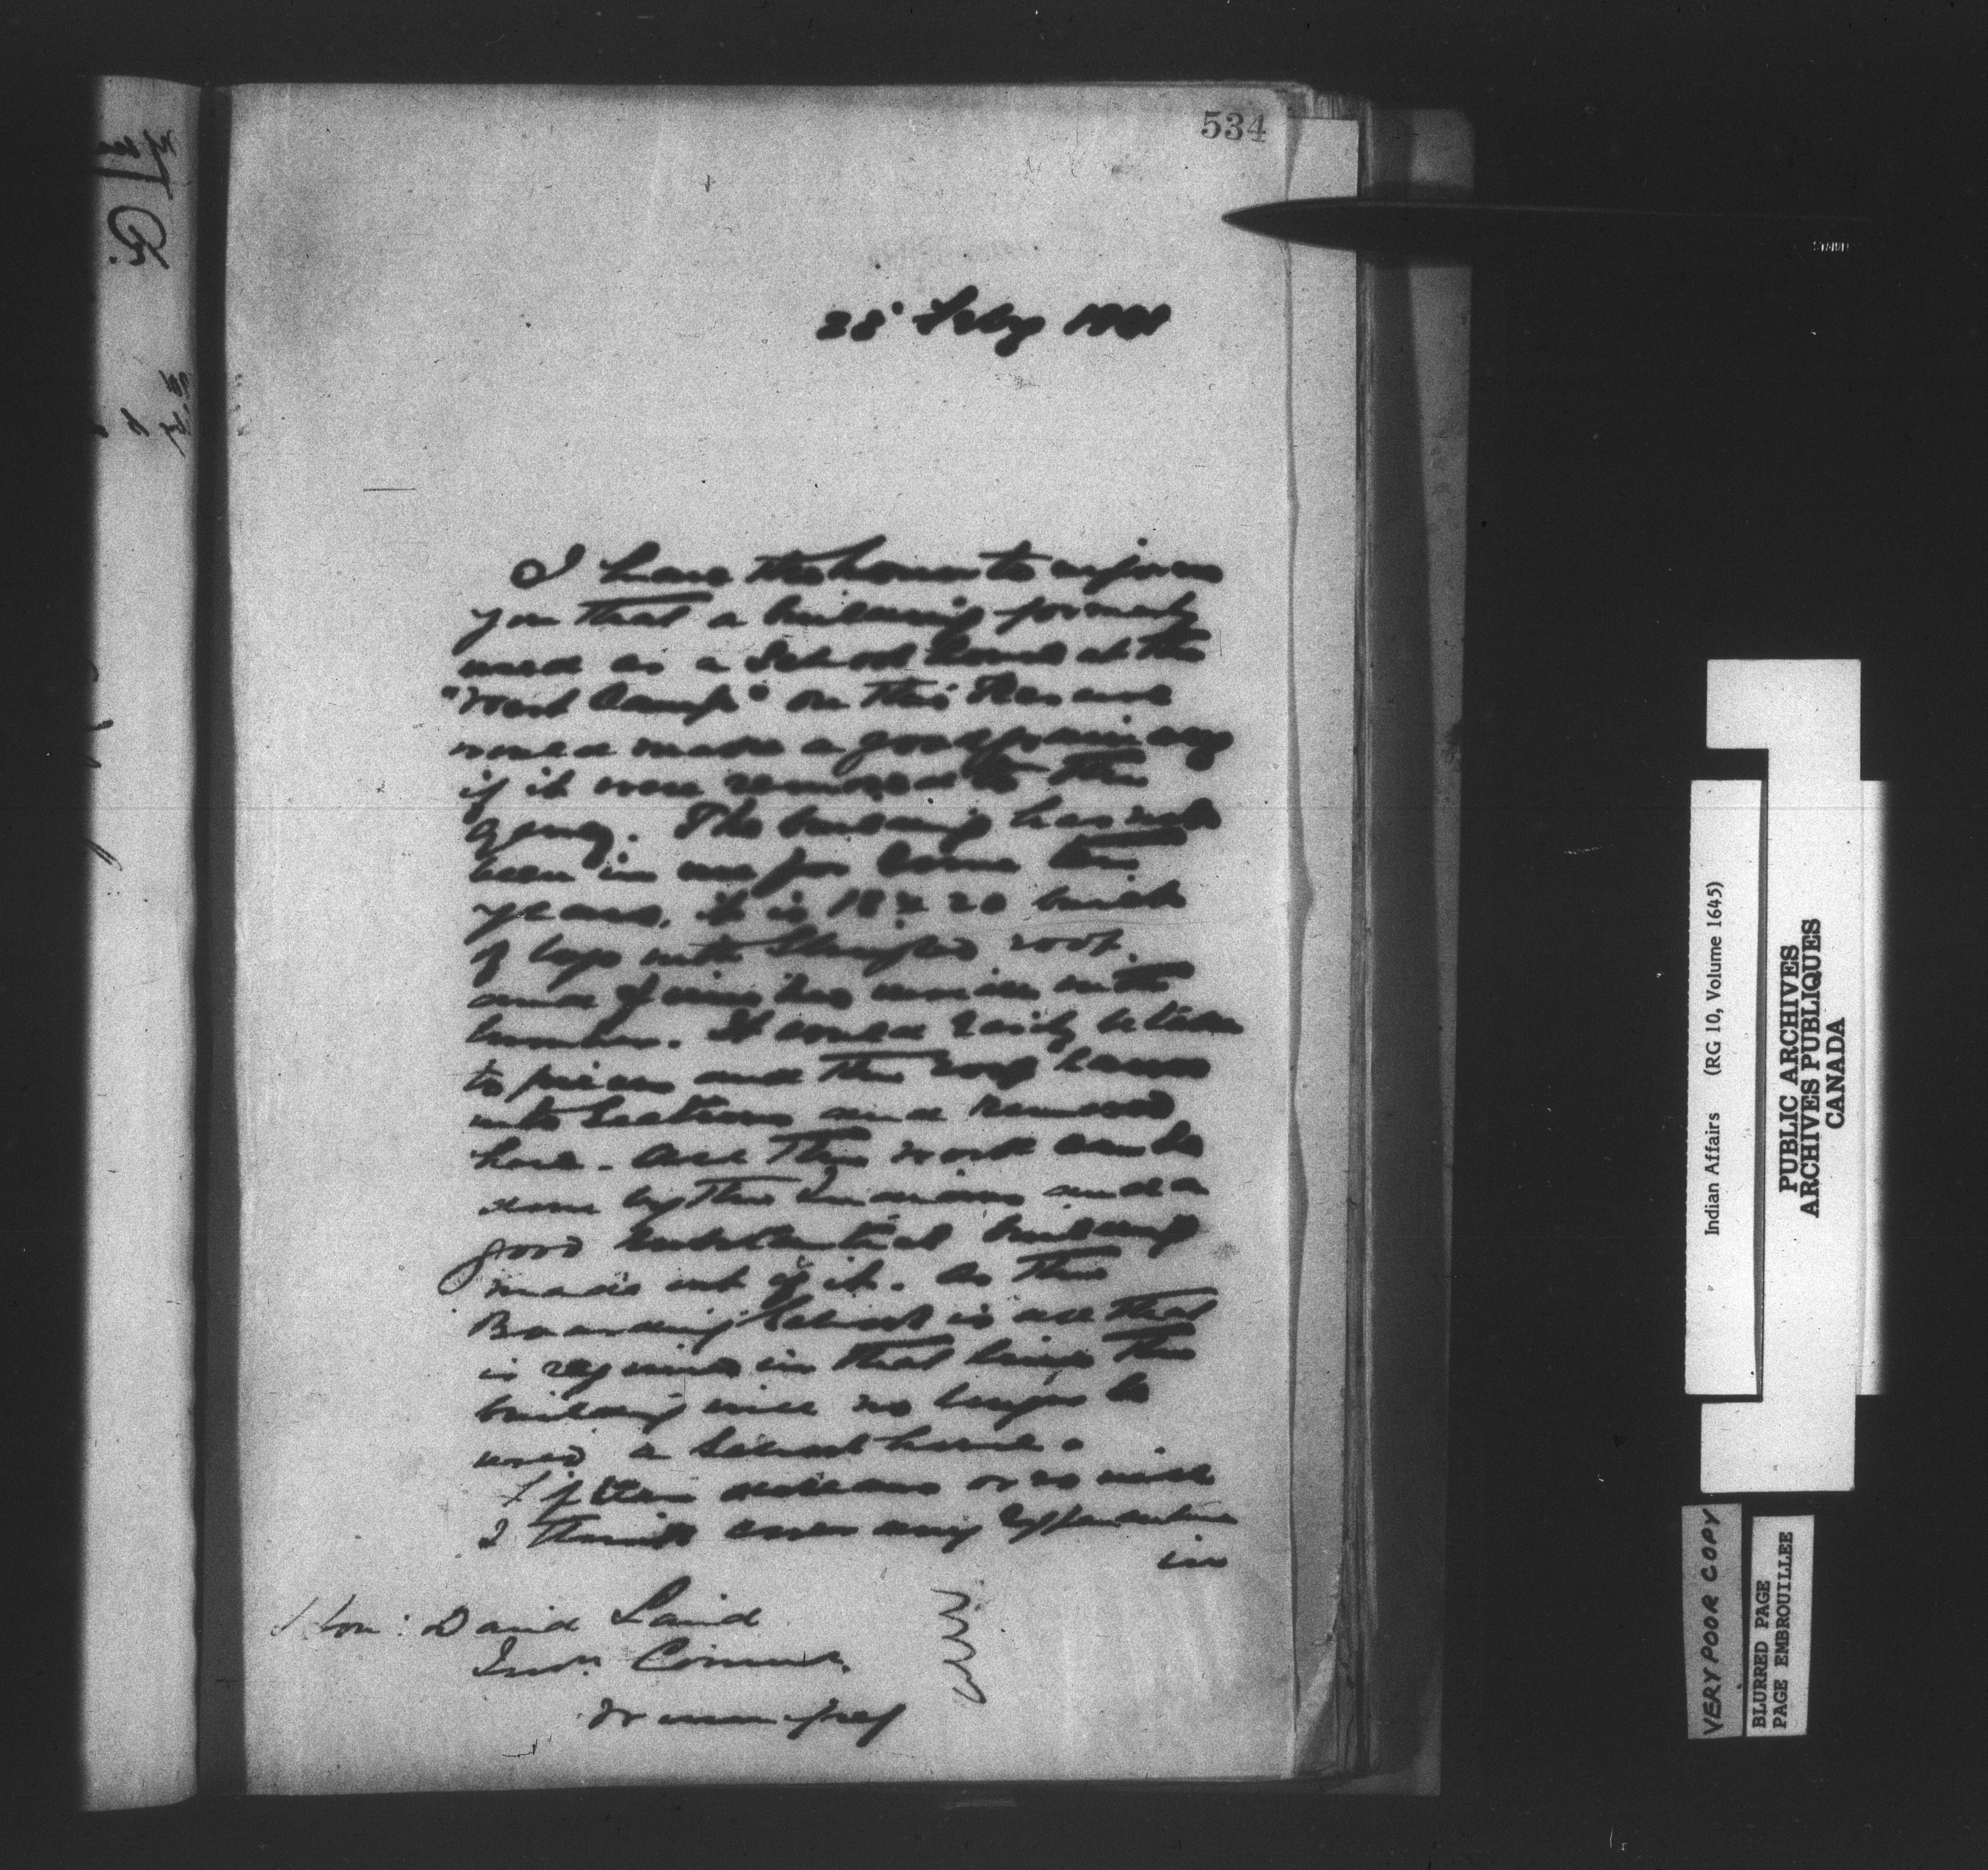 534
28 Feby 1901
I have the honor to inform
you that a building formerly
used as a School House at the
"West Camp" on this Reserve
would make a good granary
if it were removed to the
Agency. The building has not
been in use for some
years, it is 18 x 20 built
of logs with shingled roof
and
lumber. It could easily be taken
to pieces and the roof
into Sections and removed
here. All the work can be
done by the Indians and a
good substantial building
made out of it. As the
Boarding School is all that
is required in that line the
building will no longer be
used a School house.
I think cover any expenditure
in
Hon: David Laird
Indn Commr.
Winnipeg
Indian Affairs (RG 10, Volume 1645)
PUBLIC ARCHIVES
ARCHIVES PUBLIQUES
CANADA
VERY POOR COPY
BLURRED PAGE
PAGE EMBROUILLEE